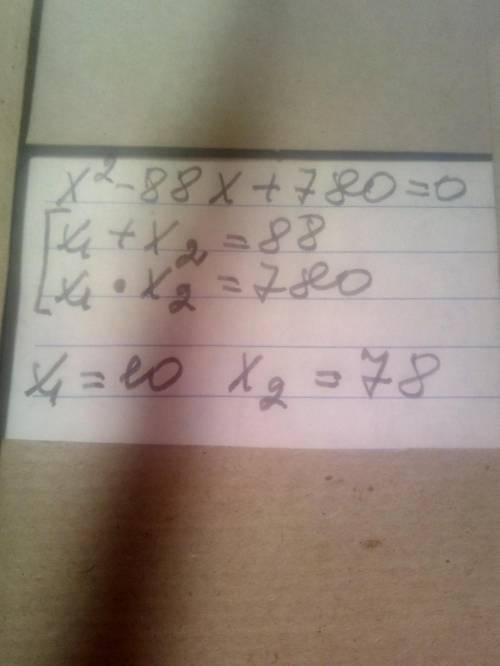 x²-88x+780=0
[x₁+x₂=88
x₁•x₂=780
x₁=10 x₂=78